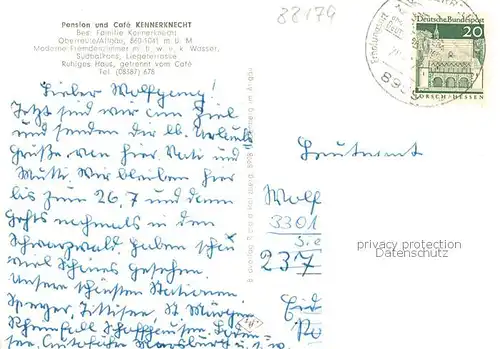 88174
Pension und Café KENNERKNECHT
Bes: Familie Kennerknecht
Oberreute/Allgäu, 860-1041 m ü. M
Moderne Fremdenzimmer m. fl. w. u. k Wasser,
Südbalkons, Liegeterrasse
Ruhiges Haus, getrennt vom Café
Tel. (08387) 678
Deutsche Bundespost
20
LORSCH/HESSEN
Lieber Wolfgang!
Jetzt sind wir am Ziel
und senden dir lb. Urlaubs
grüße von hier. Vati und
Mutti. Wir bleiben hier
bis zum 26.7 und dann
gehts nochmals in den
Schwarzwald. Haben schon
viel Schönes gesehen.
Unsere schönsten Stationen
Speyer, Titisee, St. Märgen
Rheinfall Schaffhausen,
Meersburg u.s.w.
Leutnant
Wolf
3301
237
privacy protection
Datenschutz